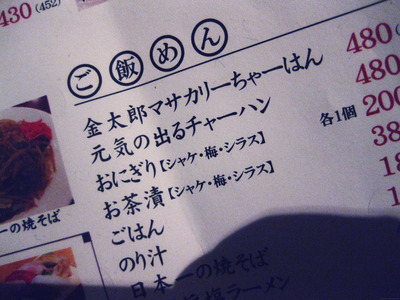 430(452)
ご飯めん
金太郎マサカリーちゃーはん 480
元気の出るチャーハン 480
おにぎり【シャケ・梅・シラス】 各1個 200
お茶漬【シャケ・梅・シラス】 38
ごはん 18
のり汁
日本一の焼そば
塩ラーメン
一の焼そば